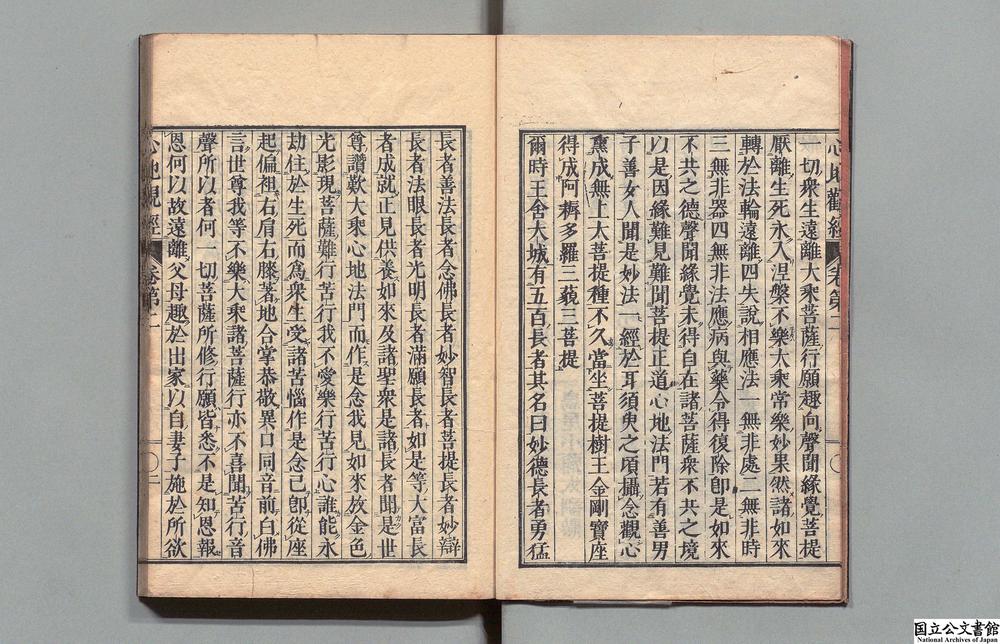 心地觀經 卷第二
一切衆生遠離大乘菩薩行願趣向聲聞緣覺菩提
厭離生死永入涅槃不樂大乘常樂妙果然諸如來
轉於法輪遠離四失說相應法一無非處二無非時
三無非器四無非法應病與藥令得復除卽是如來
不共之德聲聞緣覺未得自在諸菩薩衆不共之境
以是因緣難見難聞菩提正道心地法門若有善男
子善女人聞是妙法一經於耳須臾之頃攝念觀心
熏成無上大菩提種不久當坐菩提樹王金剛寶座
得成阿耨多羅三藐三菩提
爾時王舍大城有五百長者其名曰妙德長者勇猛
長者善法長者念佛長者妙智長者菩提長者妙辯
長者法眼長者光明長者滿願長者如是等大富長
者成就正見供養如來及諸聖衆是諸長者聞是世
尊讚歎大乘心地法門而作是念我見如來放金色
光影現菩薩難行苦行我不愛樂行苦行心誰能永
劫住於生死而爲衆生受諸苦惱作是念已卽從座
起偏袒右肩右膝著地合掌恭敬異口同音前白佛
言世尊我等不樂大乘諸菩薩行亦不喜聞苦行音
聲所以者何一切菩薩所修行願皆悉不是知恩報
恩何以故遠離父母趣於出家以自妻子施於所欲
心地觀經 卷第二 〇二
国立公文書館
National Archives of Japan